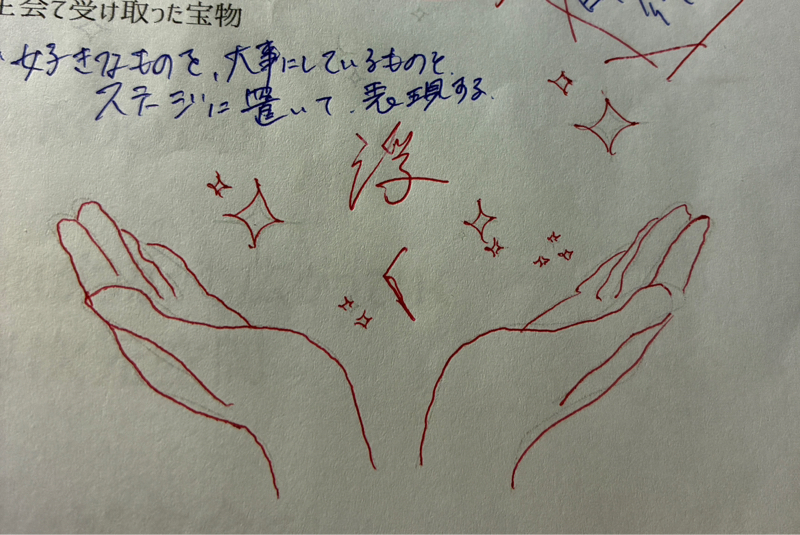 会で受け取った宝物
好きなものを、大事にしているものを、
ステージに置いて、表現する。
浮
く